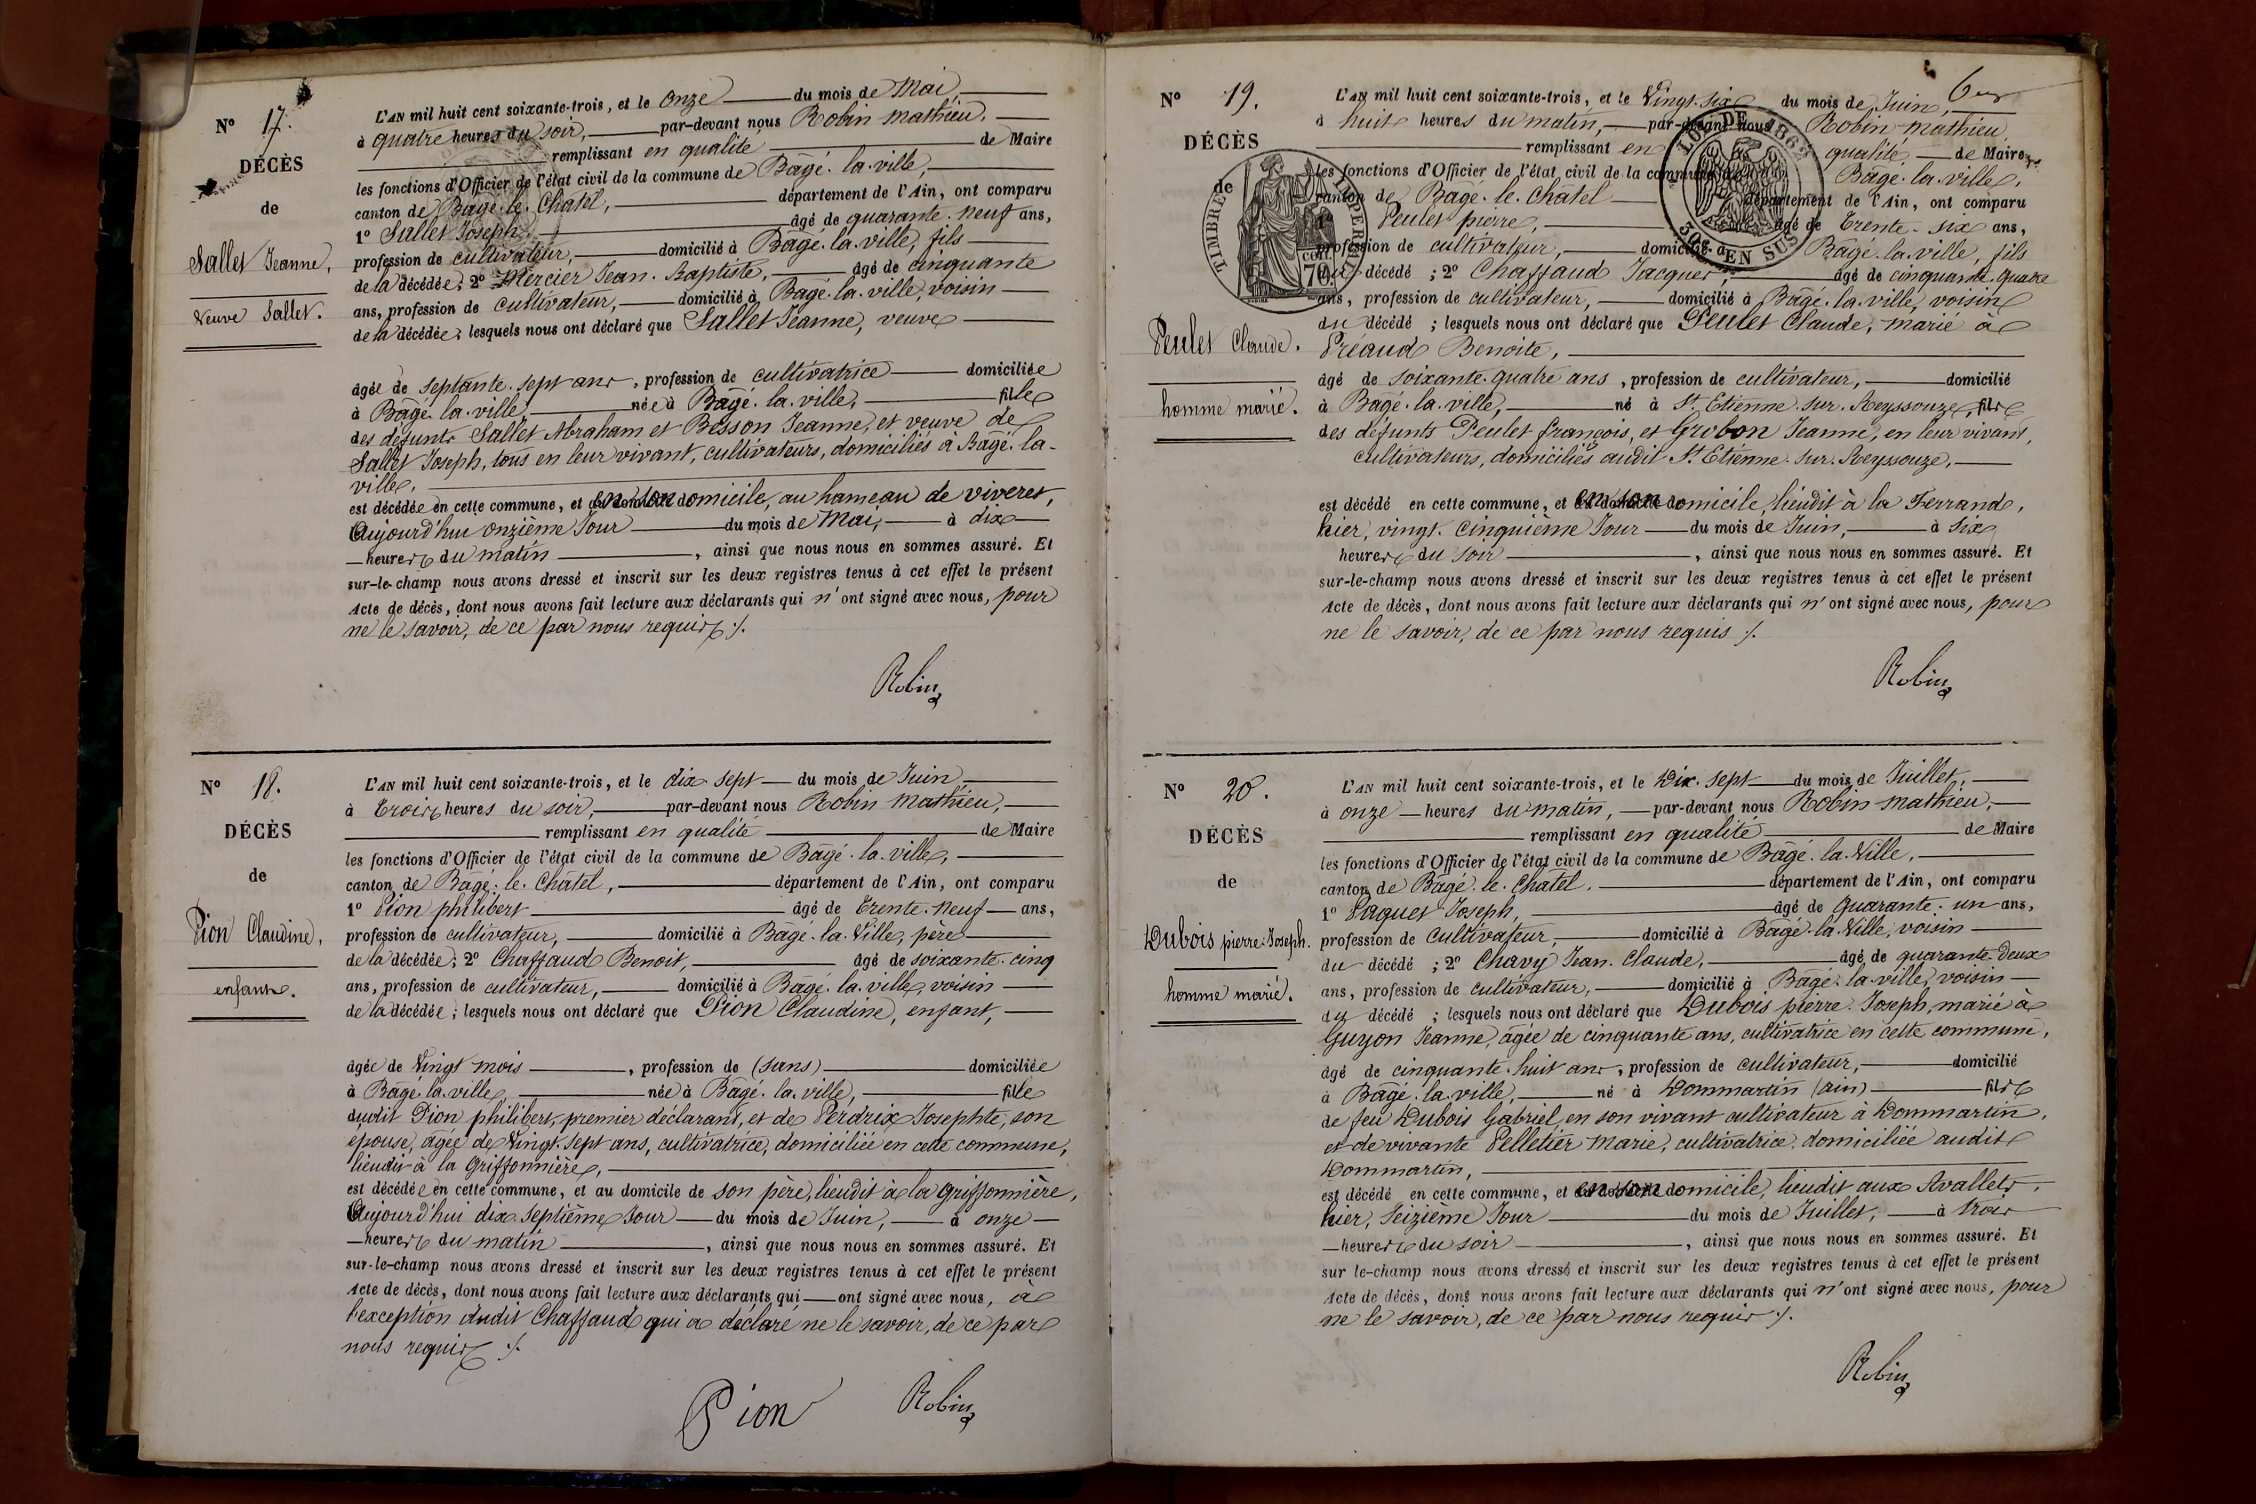 N° 17.
DÉCÈS
de
Sallet Jeanne,
Veuve Sallet.
L'AN mil huit cent soixante-trois, et le onze du mois de Mai,
à quatre heures du soir, par-devant nous Robin Mathieu,
remplissant en qualité de Maire
les fonctions d'Officier de l'état civil de la commune de Bâgé-la-ville,
canton de Bâgé-le-Châtel, département de l'Ain, ont comparu
1° Sallet Joseph, âgé de quarante-neuf ans,
profession de cultivateur, domicilié à Bâgé-la-ville, fils
de la décédée; 2° Mercier Jean-Baptiste, âgé de cinquante
ans, profession de cultivateur, domicilié à Bâgé-la-ville, voisin
de la décédée; lesquels nous ont déclaré que Sallet Jeanne, veuve
âgée de septante-sept ans, profession de cultivatrice domiciliée
à Bâgé-la-ville, née à Bâgé-la-ville, fille
des défunts Sallet Abraham et Besson Jeanne, et veuve de
Sallet Joseph, tous en leur vivant, cultivateurs, domiciliés à Bâgé-la-
ville,
est décédée en cette commune, et en son domicile, au hameau de viveret,
Aujourd'hui onzième Jour du mois de Mai, à dix
heures du matin, ainsi que nous nous en sommes assuré. Et
sur-le-champ nous avons dressé et inscrit sur les deux registres tenus à cet effet le présent
Acte de décès, dont nous avons fait lecture aux déclarants qui n'ont signé avec nous, pour
ne le savoir, de ce par nous requis ./.
Robin
N° 18.
DÉCÈS
de
Pion Claudine,
enfant.
L'AN mil huit cent soixante-trois, et le dix-sept du mois de Juin,
à trois heures du soir, par-devant nous Robin Mathieu,
remplissant en qualité de Maire
les fonctions d'Officier de l'état civil de la commune de Bâgé-la-ville,
canton de Bâgé-le-Châtel, département de l'Ain, ont comparu
1° Pion philibert âgé de trente-neuf ans,
profession de cultivateur, domicilié à Bâgé-la-Ville, père
de la décédée; 2° Chaffaud Benoit, âgé de soixante-cinq
ans, profession de cultivateur, domicilié à Bâgé-la-ville, voisin
de la décédée; lesquels nous ont déclaré que Pion Claudine, enfant,
âgée de Vingt mois, profession de (sans) domiciliée
à Bâgé-la-ville, née à Bâgé-la-ville, fille
dudit Pion philibert, premier déclarant, et de Perdrix Josephte, son
épouse, âgée de Vingt-sept ans, cultivatrice, domiciliée en cette commune,
lieudit à la Griffonnière,
est décédée en cette commune, et au domicile de son père, lieudit à la Griffonnière,
Aujourd'hui dix-septième Jour du mois de Juin, à onze
heures du matin, ainsi que nous nous en sommes assuré. Et
sur-le-champ nous avons dressé et inscrit sur les deux registres tenus à cet effet le présent
Acte de décès, dont nous avons fait lecture aux déclarants qui ont signé avec nous, à
l'exception dudit Chaffaud qui a déclaré ne le savoir, de ce par
nous requis ./.
Pion Robin
N° 19.
DÉCÈS
de
TIMBRE IMPERIAL
70 CENT.
LOI DE 1862
30C. EN SUS
Peulet Claude.
homme marié.
L'AN mil huit cent soixante-trois, et le Vingt-six du mois de Juin,
à huit heures du matin, par-devant nous Robin Mathieu,
remplissant en qualité de Maire
les fonctions d'Officier de l'état civil de la commune de Bâgé-la-ville,
canton de Bâgé-le-Châtel département de l'Ain, ont comparu
Peulet pierre, âgé de trente-six ans,
profession de cultivateur, domicilié à Bâgé-la-ville, fils
décédé; 2° Chaffaud Jacques, âgé de cinquante-quatre
ans, profession de cultivateur, domicilié à Bâgé-la-ville, voisin
du décédé; lesquels nous ont déclaré que Peulet Claude, marié à
Préaud Benoite,
âgé de soixante-quatre ans, profession de cultivateur, domicilié
à Bâgé-la-ville, né à St Etienne-sur-Reyssouze, fils
des défunts Peulet françois, et Grobon Jeanne, en leur vivant,
cultivateurs, domiciliés audit St Etienne-sur-Reyssouze,
est décédé en cette commune, et en son domicile, lieudit à la Ferrand,
hier, vingt-cinquième Jour du mois de Juin, à six
heures du soir, ainsi que nous nous en sommes assuré. Et
sur-le-champ nous avons dressé et inscrit sur les deux registres tenus à cet effet le présent
Acte de décès, dont nous avons fait lecture aux déclarants qui n'ont signé avec nous, pour
ne le savoir, de ce par nous requis ./.
Robin
N° 20.
DÉCÈS
de
Dubois pierre-Joseph.
homme marié.
L'AN mil huit cent soixante-trois, et le Dix-sept du mois de Juillet,
à onze heures du matin, par-devant nous Robin Mathieu,
remplissant en qualité de Maire
les fonctions d'Officier de l'état civil de la commune de Bâgé-la-Ville,
canton de Bâgé-le-Châtel, département de l'Ain, ont comparu
1° Paquet Joseph, âgé de quarante-un ans,
profession de cultivateur, domicilié à Bâgé-la-Ville, voisin
du décédé; 2° Chavy Jean-Claude, âgé de quarante-Deux
ans, profession de cultivateur, domicilié à Bâgé-la-ville, voisin
du décédé; lesquels nous ont déclaré que Dubois pierre-Joseph, marié à
Guyon Jeanne, âgée de cinquante ans, cultivatrice en cette commune,
âgé de cinquante-huit ans, profession de cultivateur, domicilié
à Bâgé-la-ville, né à Dommartin (ain) fils
de feu Dubois Gabriel, en son vivant cultivateur à Dommartin,
et de vivante Pelletier Marie, cultivatrice, domiciliée audit
Dommartin,
est décédé en cette commune, et en son domicile, lieudit aux Avallets,
hier, seizième Jour du mois de Juillet, à trois
heures du soir, ainsi que nous nous en sommes assuré. Et
sur le-champ nous avons dressé et inscrit sur les deux registres tenus à cet effet le présent
Acte de décès, dont nous avons fait lecture aux déclarants qui n'ont signé avec nous, pour
ne le savoir, de ce par nous requis ./.
Robin